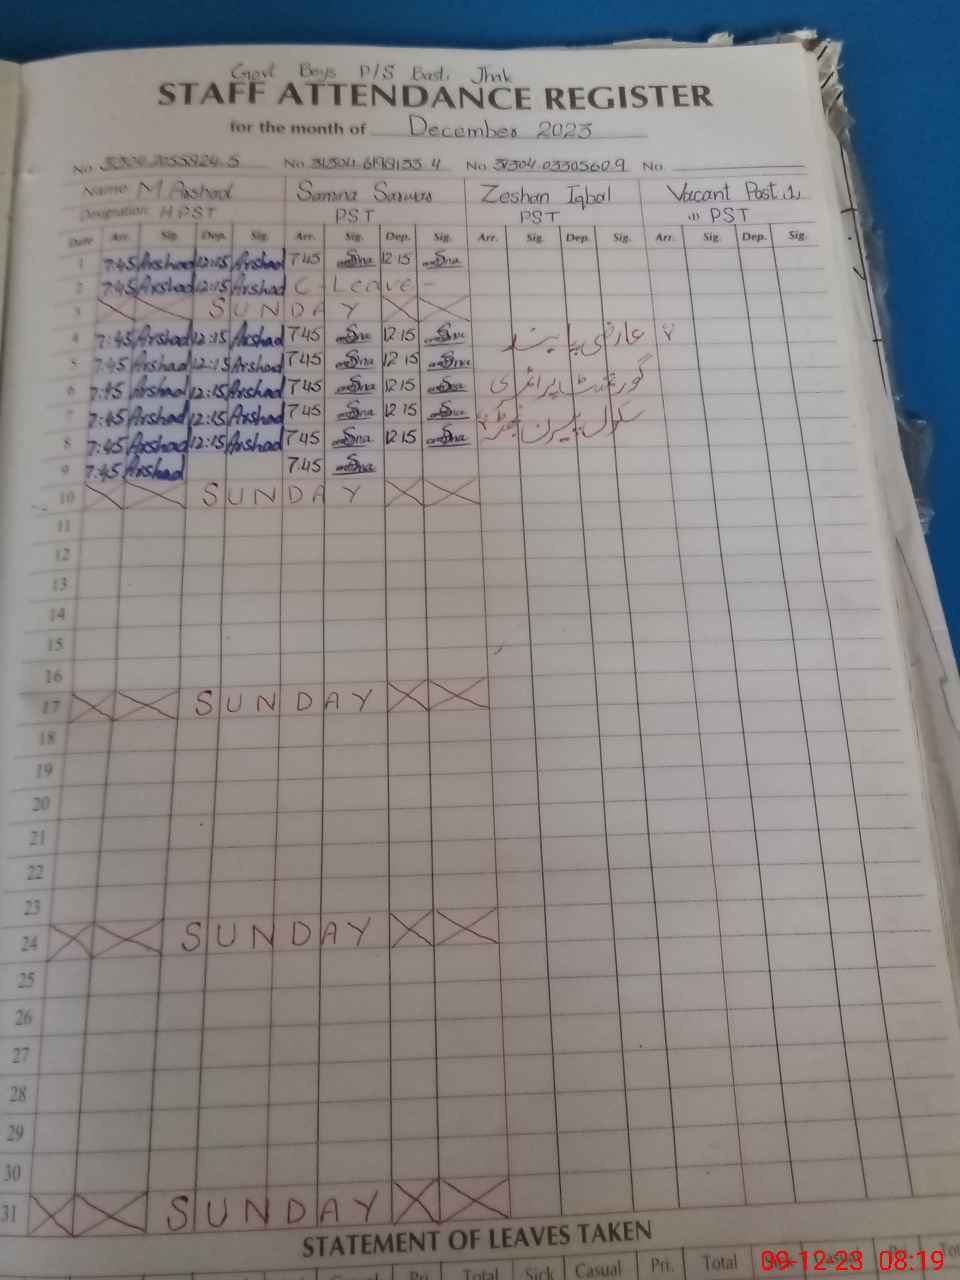 Govt Boys P/S East. Jhok
STAFF ATTENDANCE REGISTER
for the month of December 2023
No. No. 31304.6198133.4 No. 31304.0330560.9 No.
Name: M Arshad Samna Sarwar Zeshan Iqbal Vacant Post.1
Designation: H PST PST PST (1) PST
Date Arr. Sig. Dep. Sig. Arr. Sig. Dep. Sig. Arr. Sig. Dep. Sig. Arr. Sig. Dep. Sig.
1 7:45 Arshad 12:15 Arshad 7.45 12.15
2 7:45 Arshad 12:15 Arshad C - Leave -
3 SUNDAY
4 7:45 Arshad 12:15 Arshad 7.45 12.15 عارضی
5 7:45 Arshad 12:15 Arshad 7.45 12.15
6 7:45 Arshad 12:15 Arshad 7.45 12.15 گورنمنٹ پرائمری
7 7:45 Arshad 12:15 Arshad 7.45 12.15 سکول
8 7:45 Arshad 12:15 Arshad 7.45 12.15
9 7:45 Arshad 7.45
10 SUNDAY
11
12
13
14
15
16
17 SUNDAY
18
19
20
21
22
23
24 SUNDAY
25
26
27
28
29
30
31 SUNDAY
STATEMENT OF LEAVES TAKEN
Casual Pri. Total Sick Casual Pri. Total Sick Casual Pri.
09-12-23 08:19